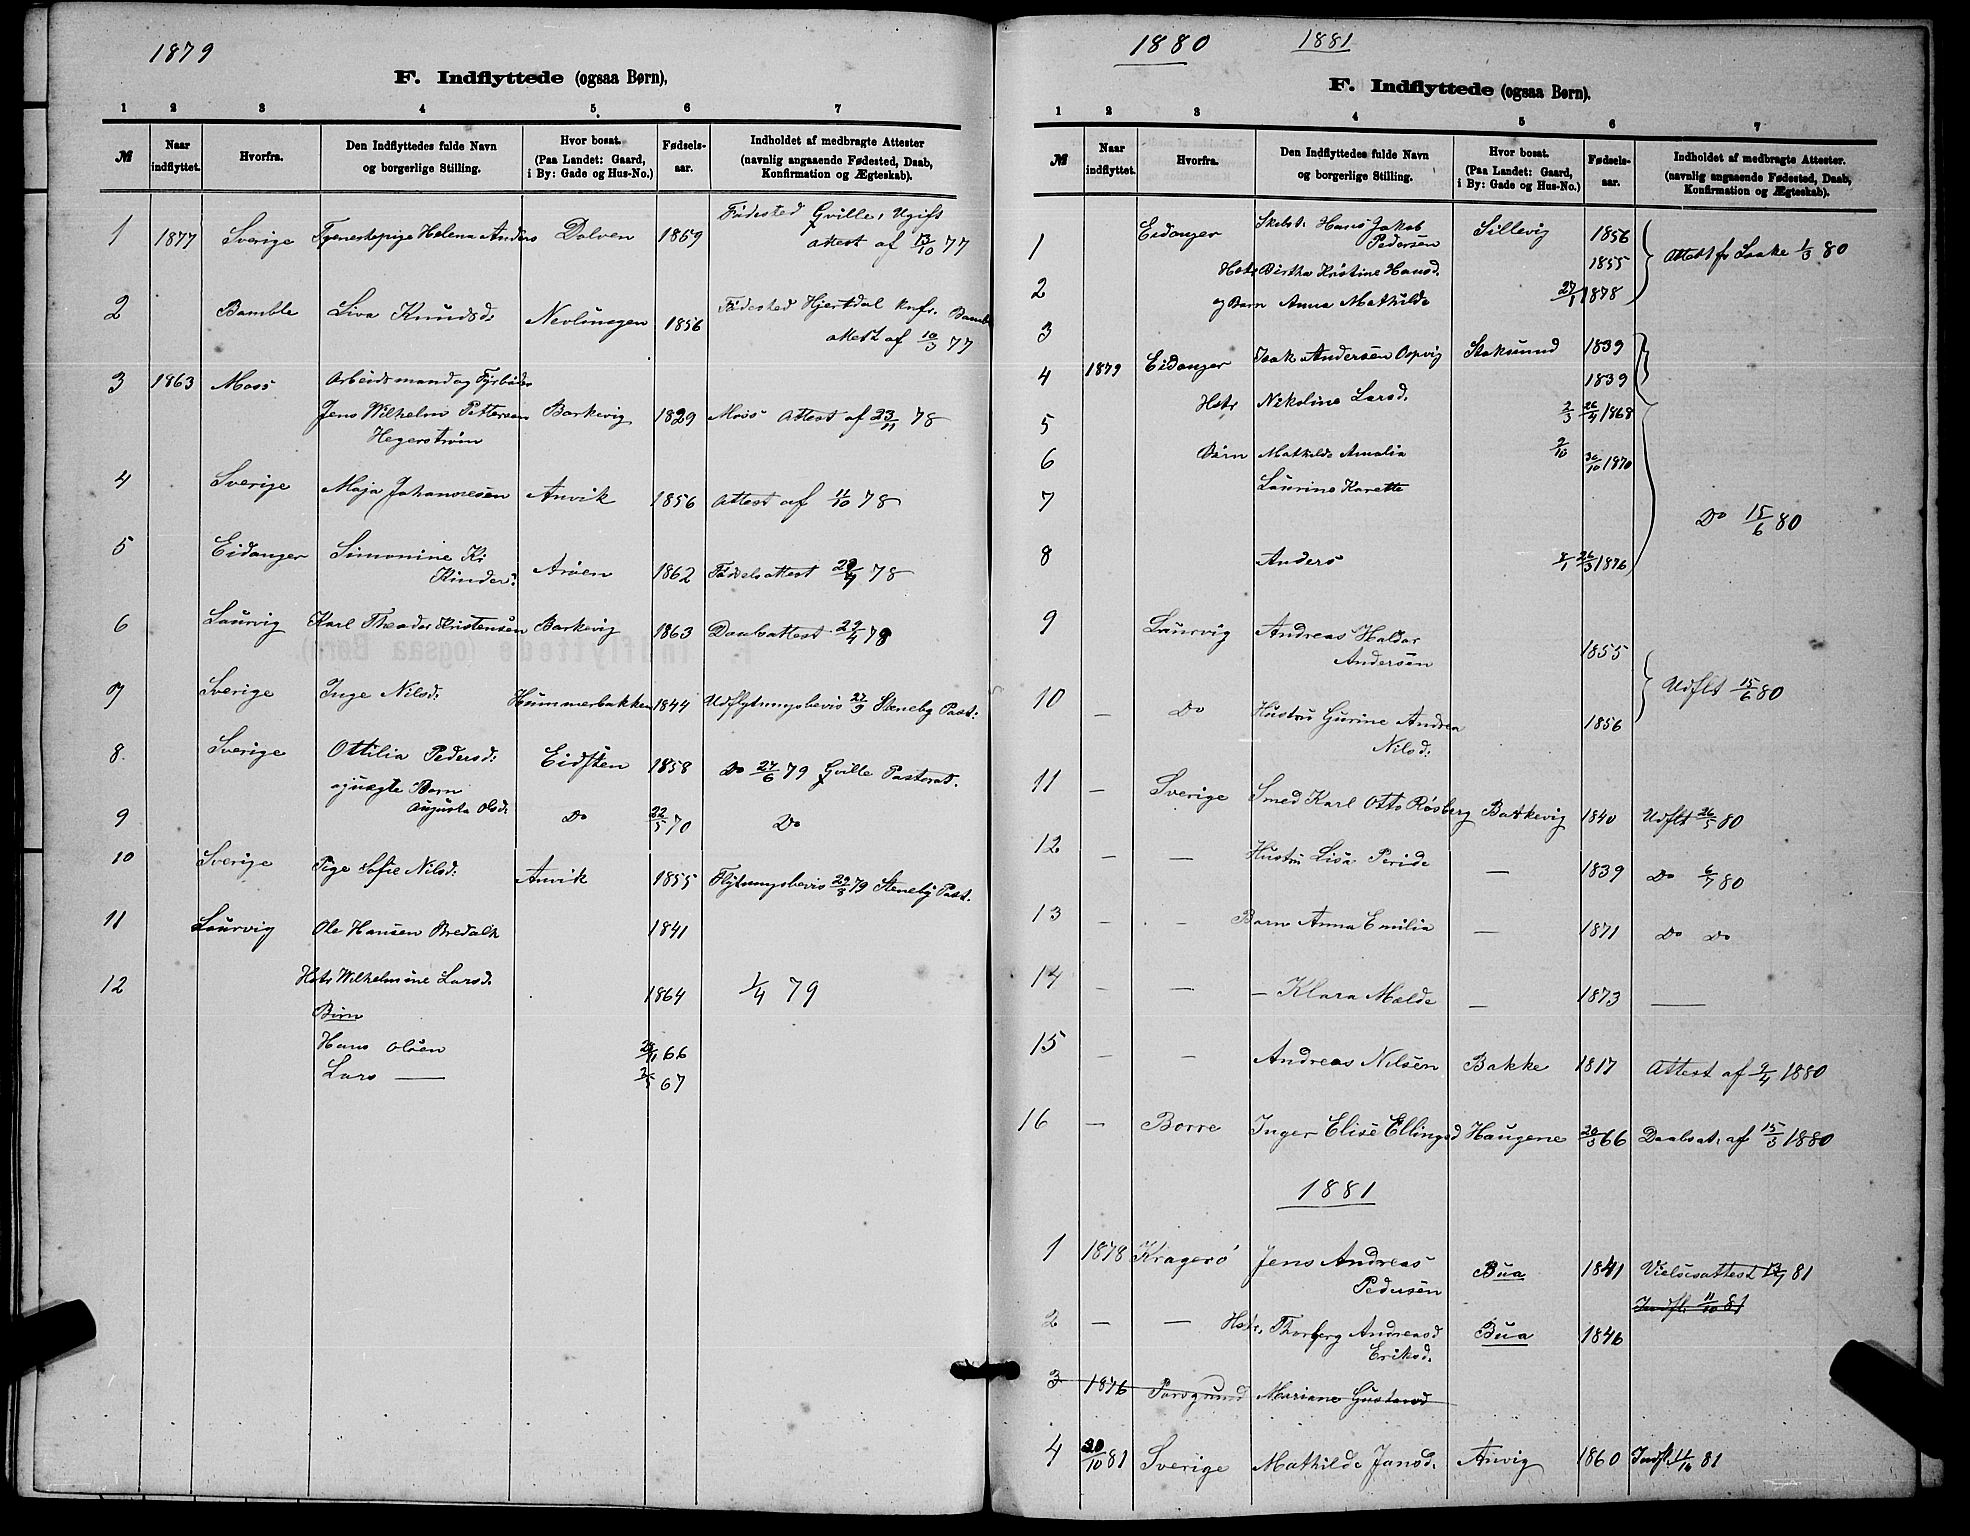 1879
F. Indflyttede (ogsaa Børn).
1 2 3 4 5 6 7
№ Naar indflyttet. Hvorfra. Den Indflyttedes fulde Navn og borgerlige Stilling. Hvor bosat. (Paa Landet: Gaard, i By: Gade og Hus-No.) Fødsels-aar. Indholdet af medbragte Attester (navnlig angaaende Fødested, Daab, Konfirmation og Ægteskab).
1 1877 Sverige Tjenestepige Helena Anders Dolven 1859 Fødested Gville, Ugift
attest af 13/10 77
2 Bamble Liva Knudsd. Nevlungen 1856 Fødested Hjertdal knf. Bamb
attest af 10/3 77
3 1863 Moss Arbeidsmand og Fyrbøder
Jens Wilhelm Pettersen Barkevig 1829 Moss attest af 23/11 78
Hegerstrøm
4 Sverige Maja Johannesen Anvik 1856 Attest af 11/10 78
5 Eidanger Simonine
Aröen 1862 Fødselsattest 78
6 Laurvig Karl Theodor Kristensen Barkevig 1863 Daabsattest 29/4 78
7 Sverige Inge Nilsd. Hummerbakken 1844 Udflytningsbevis 27/9 Steneby Past:
8. Sverige Ottilia Pedersd. Eidsten 1858 Do 27/6 79 Gville Pastorat.
og uægte Barn
9 Augusta Olsd. Do 22/5 70 Do
10 Sverige Pige Sofie Nilsd. Anvik 1855 Flytningsbevis 29/3 79 Steneby Past.
11 Laurvig Ole Hansen Bredalh 1841
12 Hstr Wilhelmine Larsd. 1864 1/4 79
Børn
Hans Olsen 66
Lars — 67
1880 1881
F. Indflyttede (ogsaa Børn).
1 2 3 4 5 6 7
№ Naar indflyttet. Hvorfra. Den Indflyttedes fulde Navn og borgerlige Stilling. Hvor bosat. (Paa Landet: Gaard, i By: Gade og Hus-No.) Fødsels-aar. Indholdet af medbragte Attester. (navnlig angaaende Fødested, Daab, Konfirmation og Ægteskab).
1 Eidanger Skibst: Hans Jakob Pedersen Sillevig 1856 Attest fr 1/3 80
Hstr Birthe Kristine Hansd. 1855
2 og Barn Anna Mathilde 27/1 1878
3
4 1879 Eidanger Isak Andersen Ospvig Stoksund 1839
1839
5 Hstr Nikoline Larsd. 26/4 1868
6 Børn Mathilde Amalia 30/10 1870
7 Laurine Karette
Do 15/6 80
8 Anders 26/3 1876
9 Laurvig Andreas Haldor
Andersen 1855
Udflt 15/6 80
10 — Do Hustru Gurine Andrea 1856
Nilsd.
11 — Sverige Smed Karl Otto Røsberg Barkevig 1840 Udflt 26/5 80
12 — — Hustru Lisa Peride — 1839 Do 6/7 80
13 — — Barn Anna Emilia — 1871 Do Do
14 — — — Klara Mælde — 1873 —
15 — — Andreas Nilsen Bakke 1817 Attest af 9/4 1880
16 — Borre Inger Elise Ellingsd Haugene 20/3 66 Daabsat. af 15/5 1880
1881
1 1878 Kragerö Jens Andreas
Pedersen Bua 1841 Vielsesattest 81
Indfl. 11/10 81
2 — — Hstr. Thorberg Andreasd Bua 1846
Eriksd.
3 1876 Porsgrund Mariane Gustavsd
4 20/10 81 Sverige Mathilde Jansd. Anvig 1860 Indfl. 11/10 81